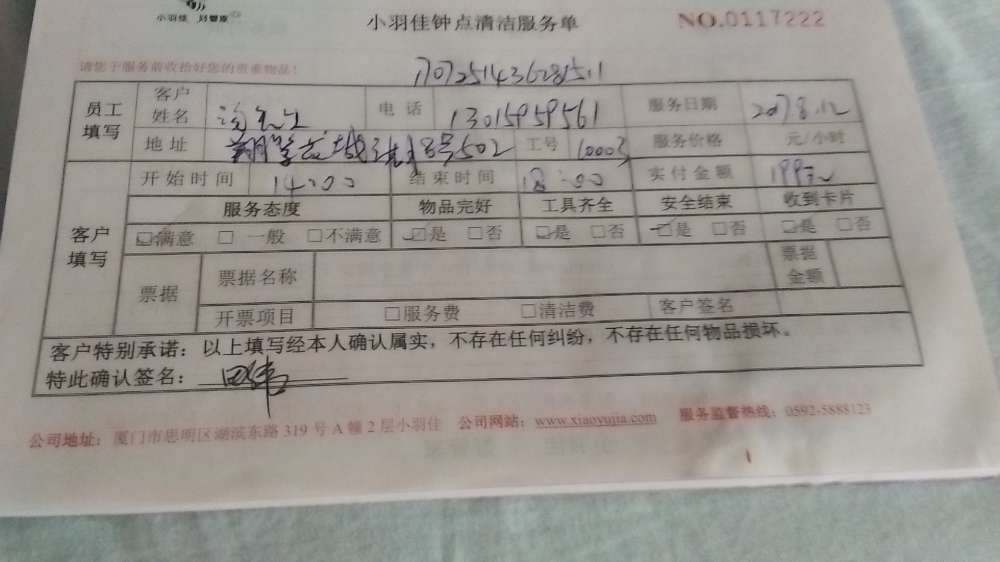 小羽佳
小羽佳钟点清洁服务单
NO.0117222
请您于服务前收拾好您的贵重物品!
员工填写 客户姓名 电话 13015959561 服务日期 2017.8.12
地址 8号502 工号 10003 服务价格 元/小时
客户填写 开始时间 14:00 结束时间 18:00 实付金额
服务态度 物品完好 工具齐全 安全结束 收到卡片
☑满意 □一般 □不满意 ☑是 □否 ☑是 □否 ☑是 □否 ☑是 □否
票据 票据名称 票据金额
开票项目 □服务费 □清洁费 客户签名
客户特别承诺:以上填写经本人确认属实,不存在任何纠纷,不存在任何物品损坏。
特此确认签名:
公司地址:厦门市思明区湖滨东路319号A幢2层小羽佳 公司网站:www.xiaoyujia.com 服务监督热线:0592-5888123